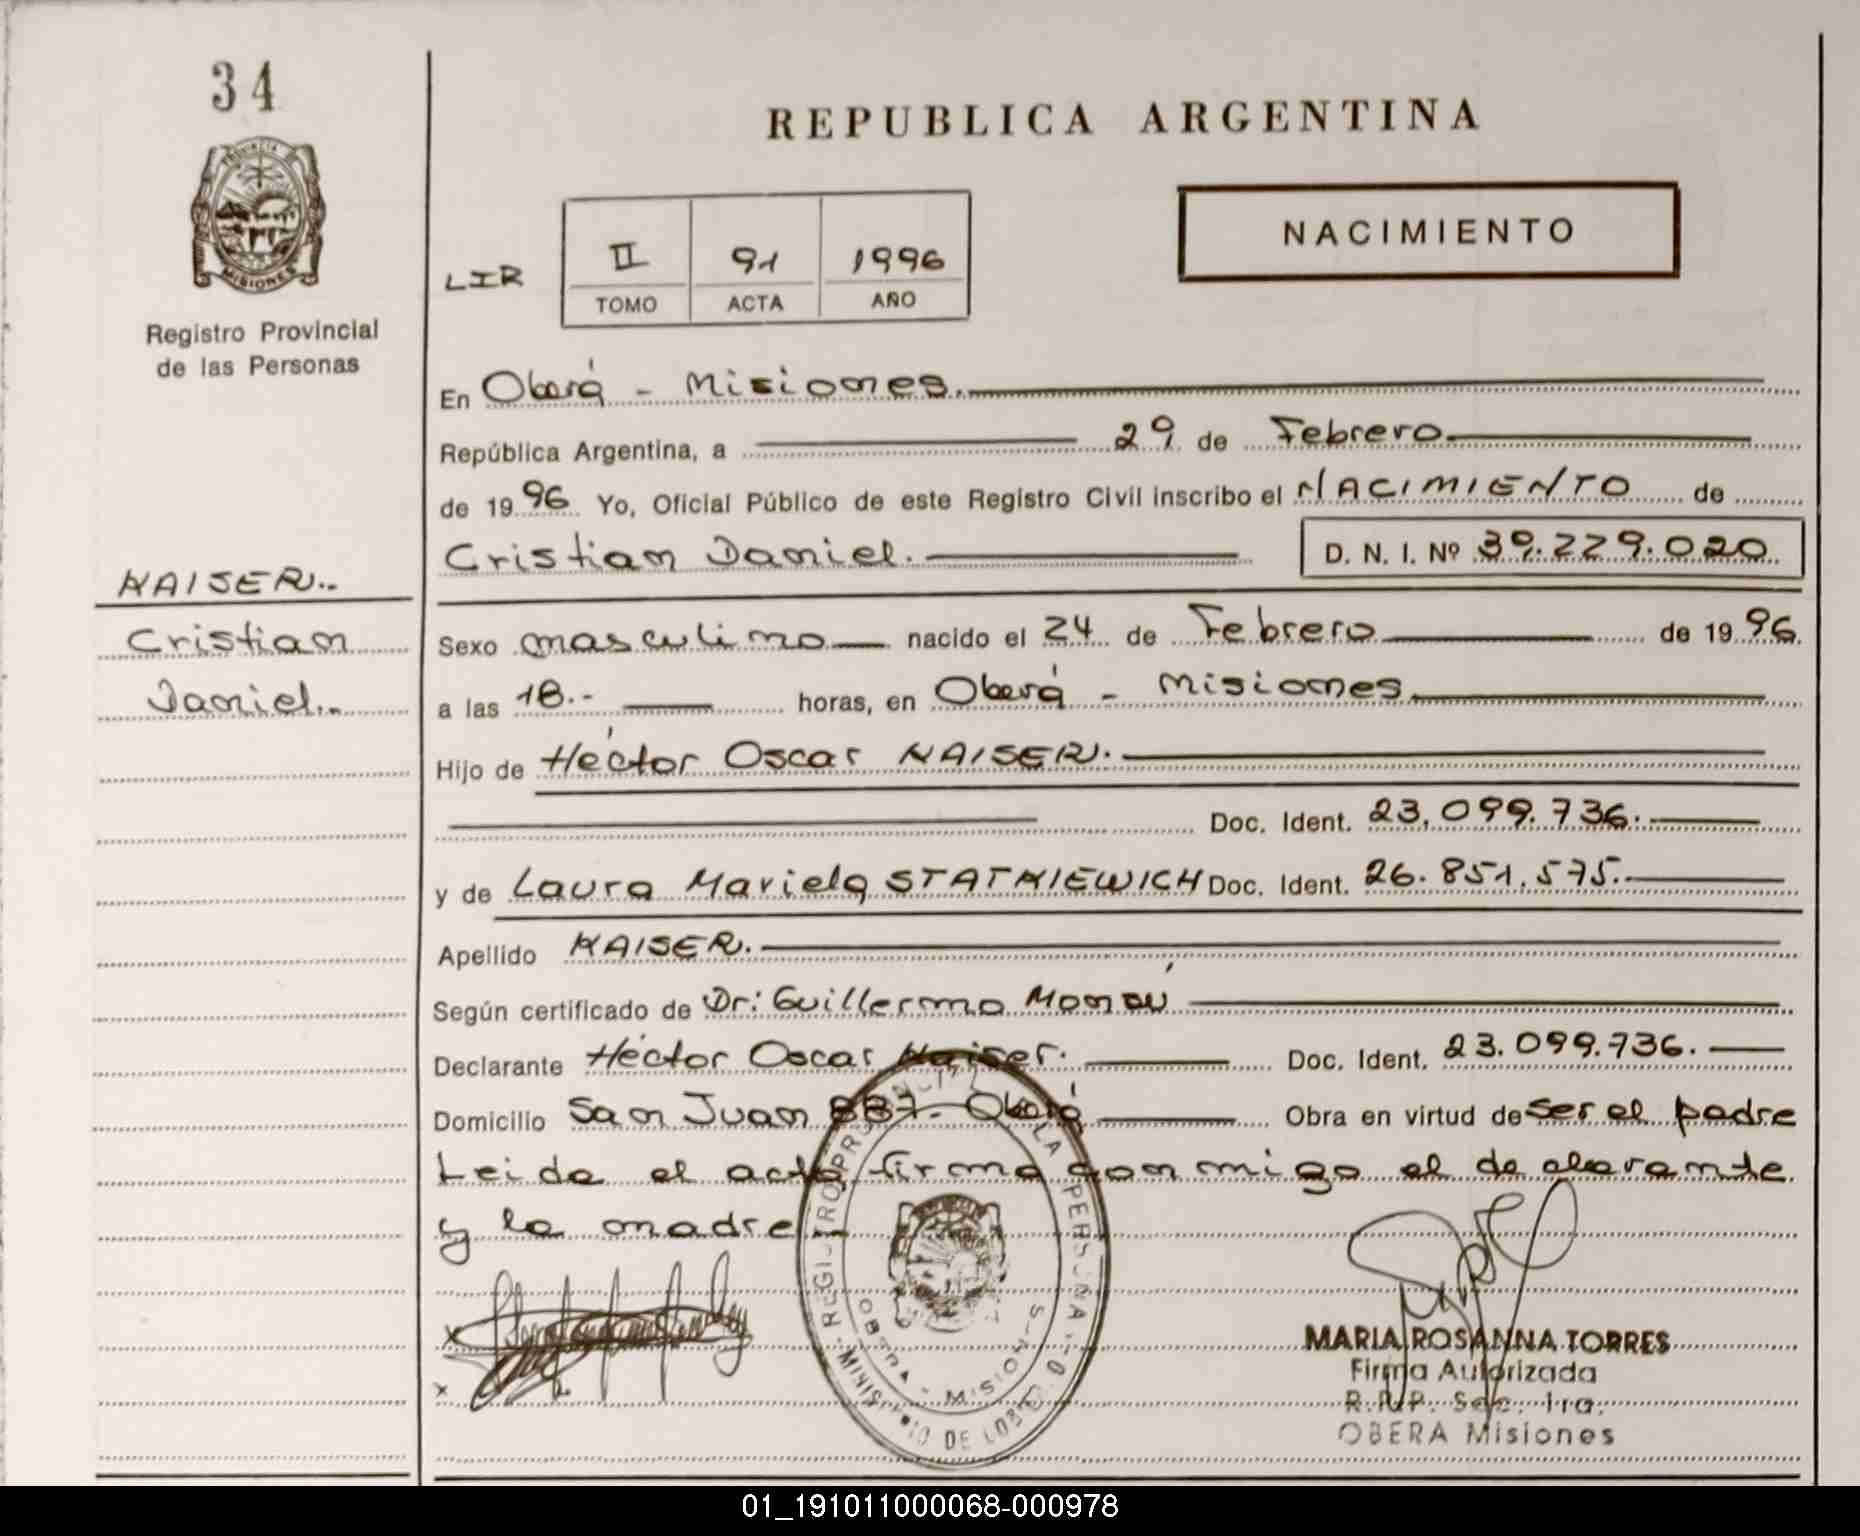 34
REPUBLICA ARGENTINA
PROVINCIA DE
MISIONES
NACIMIENTO
LIR
II 91 1996
TOMO ACTA AÑO
Registro Provincial
de las Personas
En Oberá - Misiones.
República Argentina, a 29 de Febrero
de 1996 Yo, Oficial Público de este Registro Civil inscribo el NACIMIENTO de
Cristian Daniel. D. N. I. Nº 39.229.020
KAISER..
Cristian
Daniel..
Sexo masculino nacido el 24 de Febrero de 1996.
a las 18.- horas, en Oberá - Misiones
Hijo de Héctor Oscar KAISER.
Doc. Ident. 23.099.736.
y de Laura Mariela STATKIEWICH Doc. Ident. 26.851.575.
Apellido KAISER.
Según certificado de Dr: Guillermo
Declarante Héctor Oscar Kaiser. Doc. Ident. 23.099.736.
Domicilio San Juan 887- Oberá Obra en virtud de ser el padre
Leida el acta firma conmigo el declarante
y la madre
OBERA - MISIONES
MARIA ROSANNA TORRES
Firma Autorizada
R.P.P. Sec. 1ra.
OBERA Misiones
01_191011000068-000978